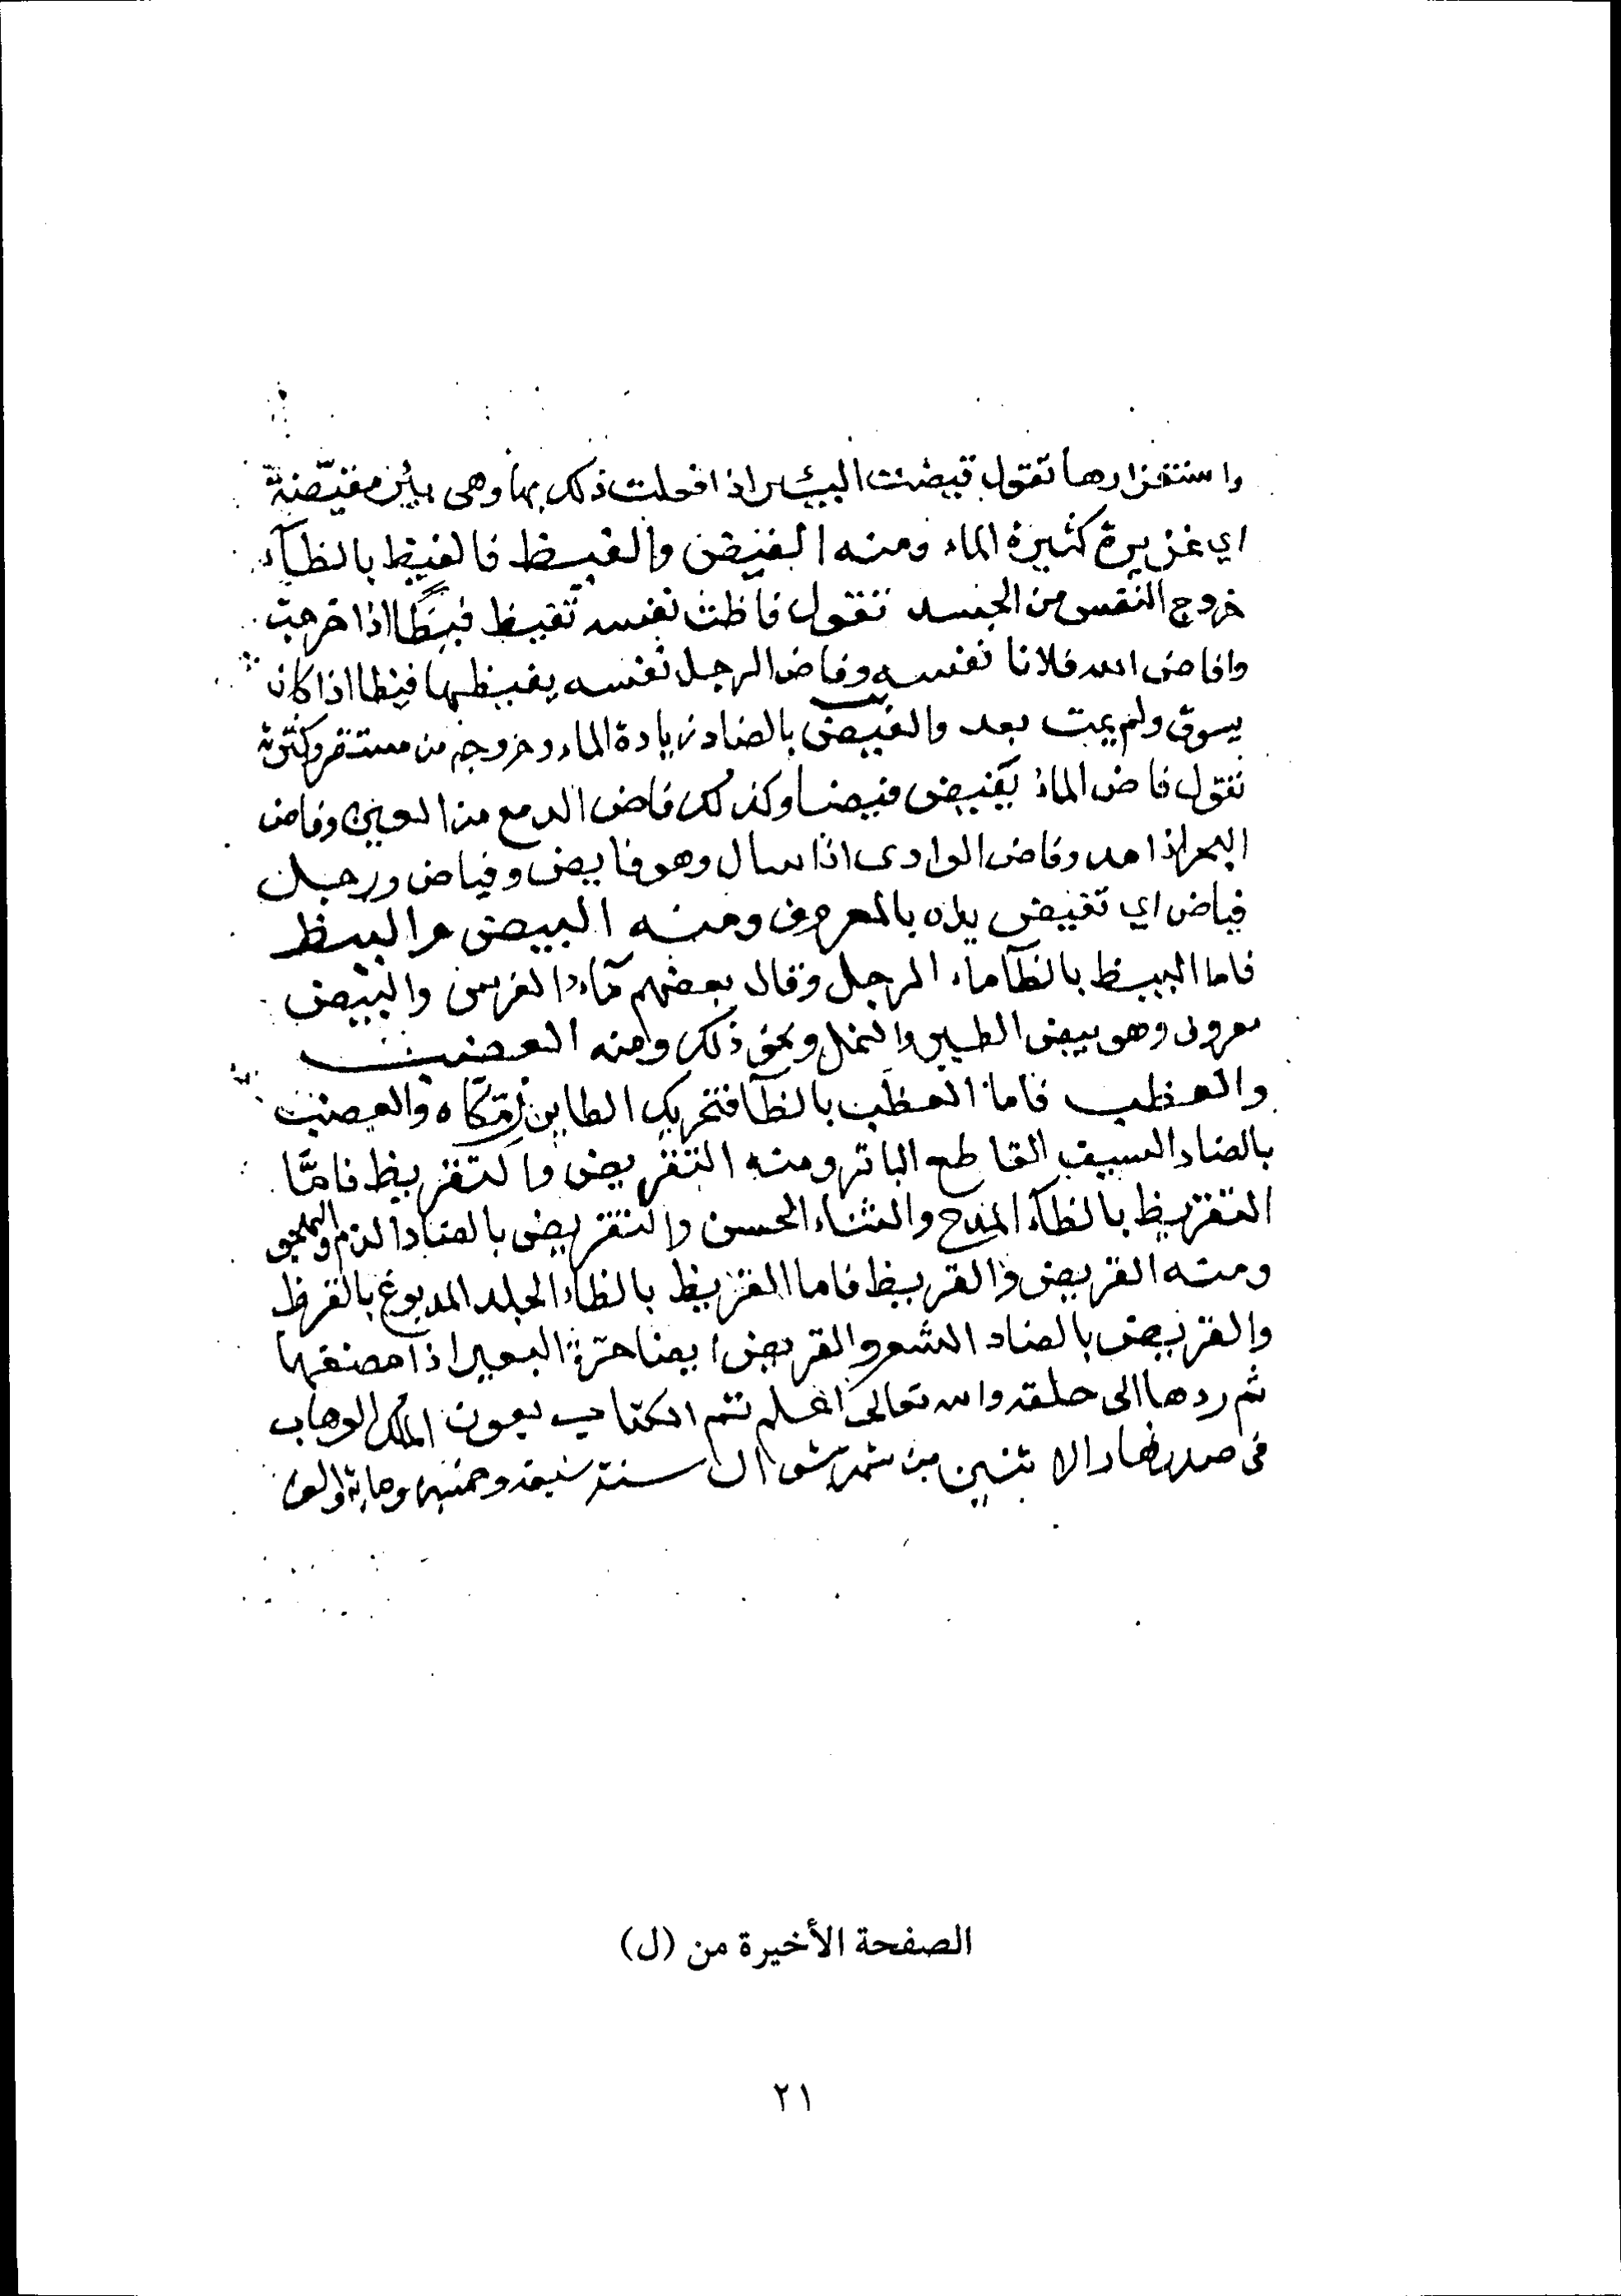 واستغزارها تقول قيضت البئر اذا فعلت ذلك بها وهى بئر مقيّضة
اي غزيرة كثيرة الماء ومنه الفيض والفيظ فالفيظ بالظآء
خروج النفس من الجسد تقول فاظت نفسه تفيظ فيظًا اذا خرجت
وافاض الله فلانا نفسه وفاض الرجل نفسه يفيظها فيظا اذا كان
يسوق ولم يمت بعد والفيض بالضاد زيادة الماء وخروجه من مستقره وكثرته
تقول فاض الماء يفيض فيضا وكذلك فاض الدمع من العين وفاض
البحر اذا مد وفاض الوادى اذا سال وهو فايض وفياض ورجل
فياض اي تفيض يده بالمعروف ومنه البيض والبيظ
فاما البيظ بالظآ ماء الرجل وقال بعضهم ماء الفرس والبيض
معروف وهو بيض الطير والنمل ونحو ذلك ومنه العضب
والعظب فاما العظب بالظآ فتحريك الطاير زمكّاه والعضب
بالضاد السيف القاطع الباتر ومنه التقريض والتقريظ فامّا
التقريظ بالظآء المدح والثناء الحسن والتقريض بالضاد الذم
ومنه القريض والقريظ فاما القريظ بالظاء الجلد المدبوغ بالقرظ
والقريض بالضاد الشعر والقريض ايضا جرّة البعير اذا مضغها
ثم ردها الى حلقه والله تعالى اعلم تم الكتاب بعون الملك الوهاب
فى صدر نهار الاثنين من شهر شوال سنة وماية والف
الصفحة الأخيرة من (ل)
٢١